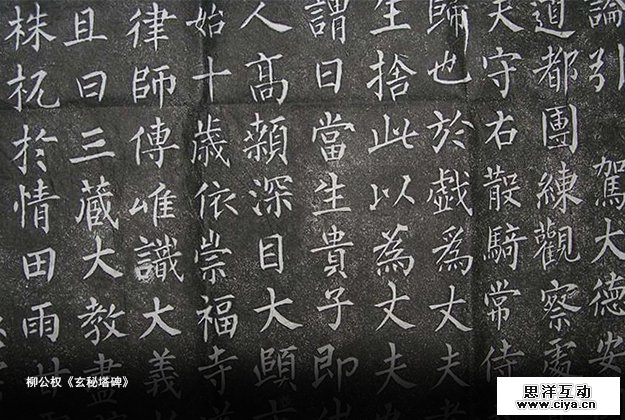 論引駕大德安
道都團練觀察處
夫守右散騎常侍
歸也於戲爲丈夫
生捨此以為丈夫
謂曰當生貴子即
人高顙深目大頤
始十歲依崇福寺
律師傳唯識大義
且曰三藏大教盡
株杌於情田雨
柳公权《玄秘塔碑》
思洋互动
www.ciya.cn